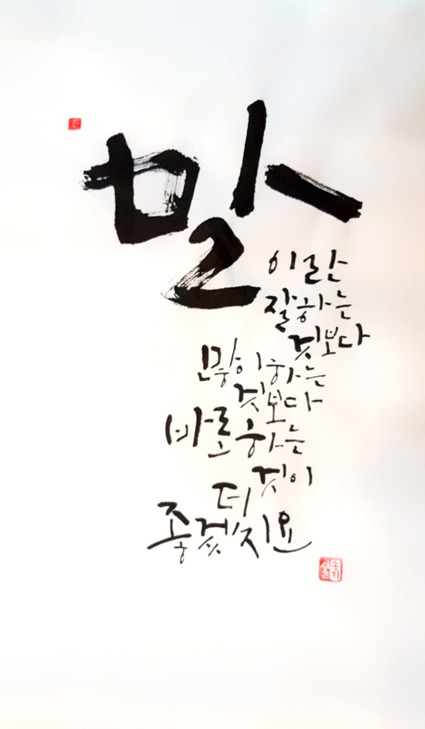 말
이란
잘하는
것보다
많이하는
것보다
바로하는
것이
더
좋겠지요